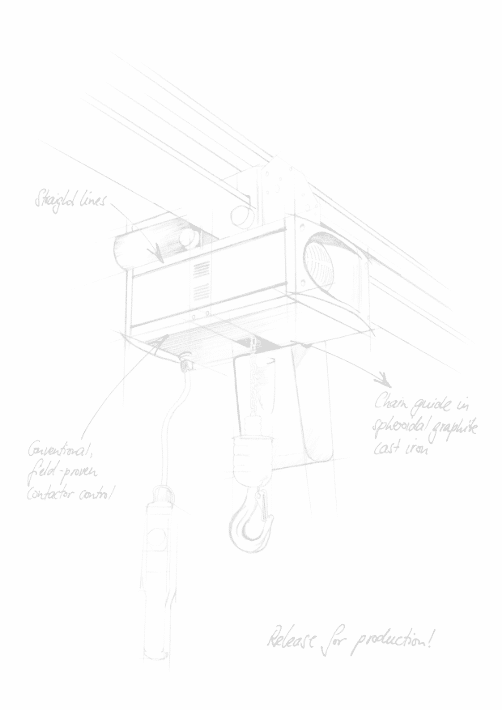 Straight lines
Chain guide in
spheroidal graphite
cast iron
Conventional,
field-proven
contactor control
Release for production!